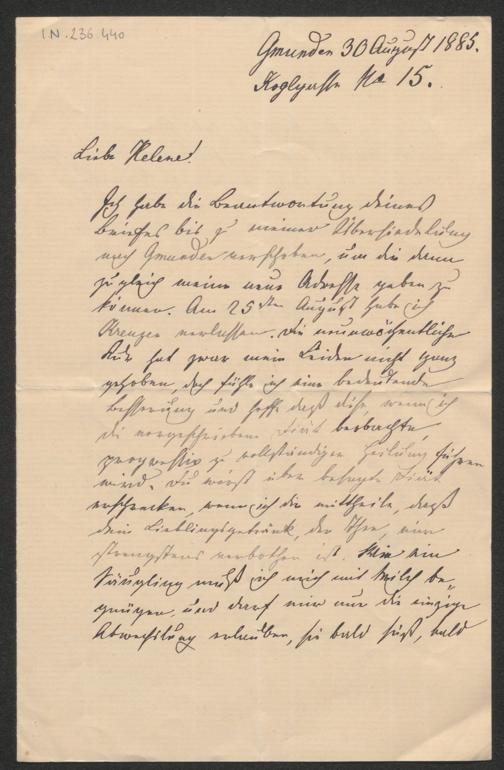 I.N. 236.440
Gmunden 30 August 1885.
Koglgasse No 15.
Liebe Helene!
Ich habe die Beantwortung deines
Briefes bis zu meiner Übersiedelung
nach Gmunden verschoben, um dir dann
zugleich meine neue Adresse geben zu
können. Am 25sten August habe ich
verlassen. Die neunwöchentliche
Kur hat zwar mein Leiden nicht ganz
gehoben, doch fühle ich eine bedeutende
Besserung und hoffe daß diese, wenn ich
die vorgeschriebene Diät beobachte,
progressiv zu vollständiger Heilung führen
wird. Du wirst über besagte Diät
erschrecken, wenn ich dir mittheile, daß
dein Lieblingsgetränk, der Thee, mir
strengstens verbothen ist. Wie ein
Säugling muß ich mich mit Milch be„
gnügen, und darf mir nur die einzige
Abwechslung erlauben, sie bald süß, bald